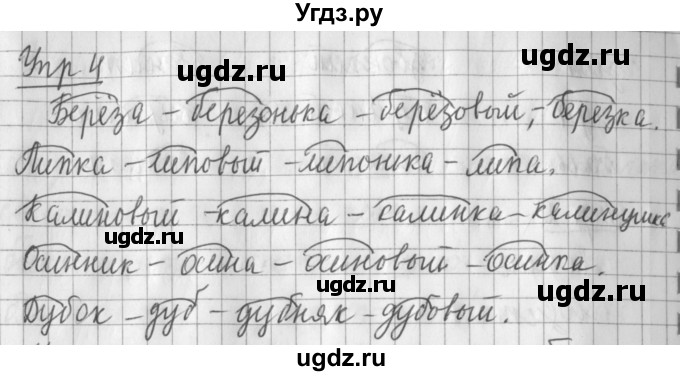 Угдз.ру
Упр 4
ugdz.ru ugdz.ru
Берёза – березонька – берёзовый, – березка.
Липка – липовый – липонька – липа.
Калиновый – калина – калинка – калинушка
ugdz.ru
Осинник – осина – осиновый – осинка.
ugdz.ru
Дубок – дуб – дубняк – дубовый.
ugdz.ru